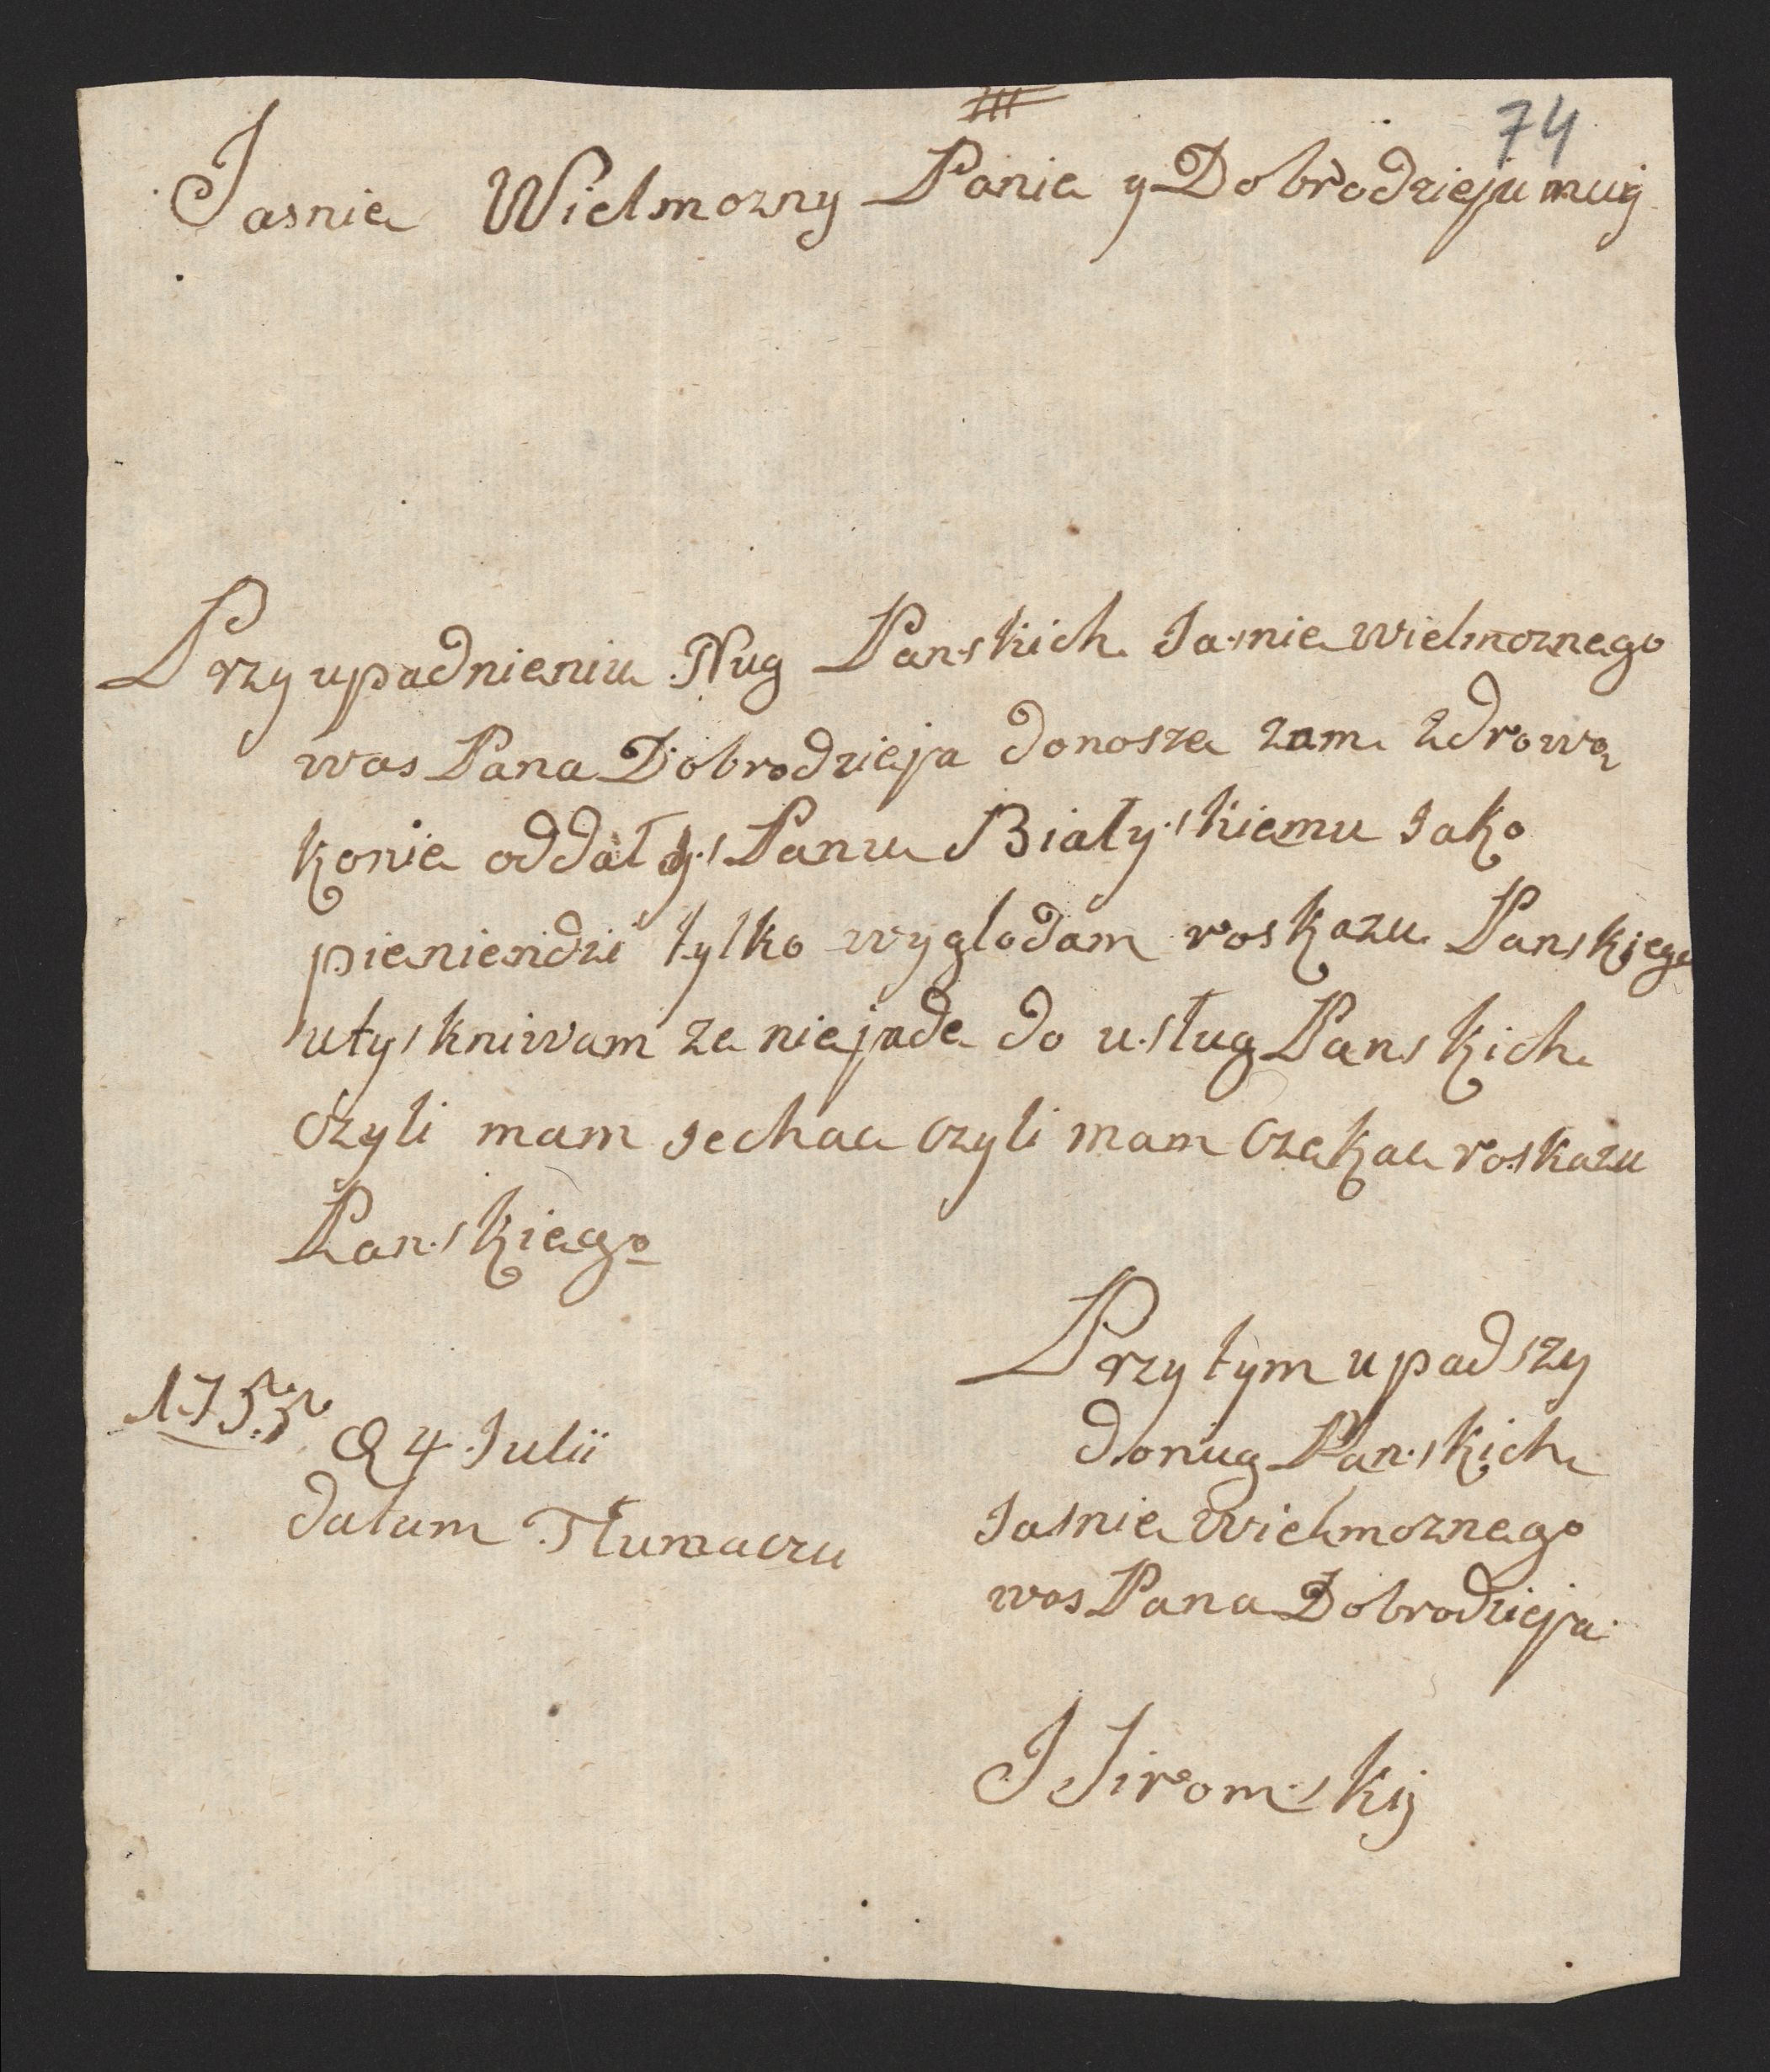 74
Jasnie Wielmozny Panie y Dobrodzieju muij
Przy upadnieniu Nug Panskich Jasnie wielmoznego
was Pana Dobrodzieja donosze zam zdrowy
konie oddał Panu Białyskiemu jako
pienienidzi tylko wyglodam roskazu Panskiego
utyskniwam ze nie jade do usług Panskich
czyli mam jechac czyli mam czekac roskazu
Panskiego
Przy tym upadszy
do nug Panskich
Jasnie Wielmoznego
was Pana Dobrodzieja
1755 D 4 Julii
datum Tłumaczu
J Siromskij